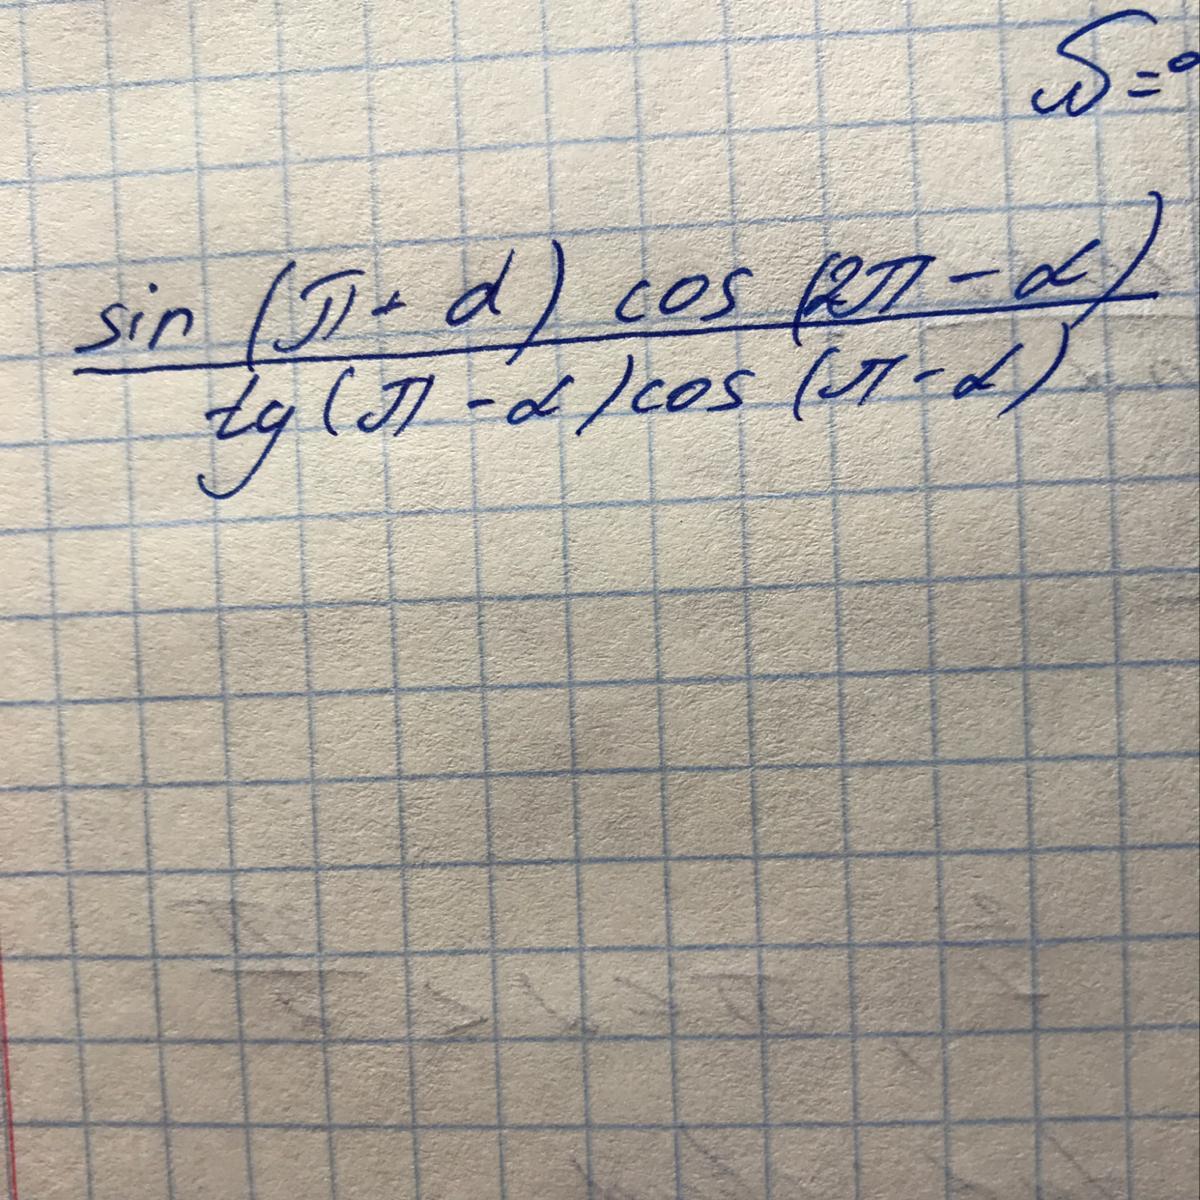 sin (π + α) cos (2π - α)
tg (π - α) cos (π - α)